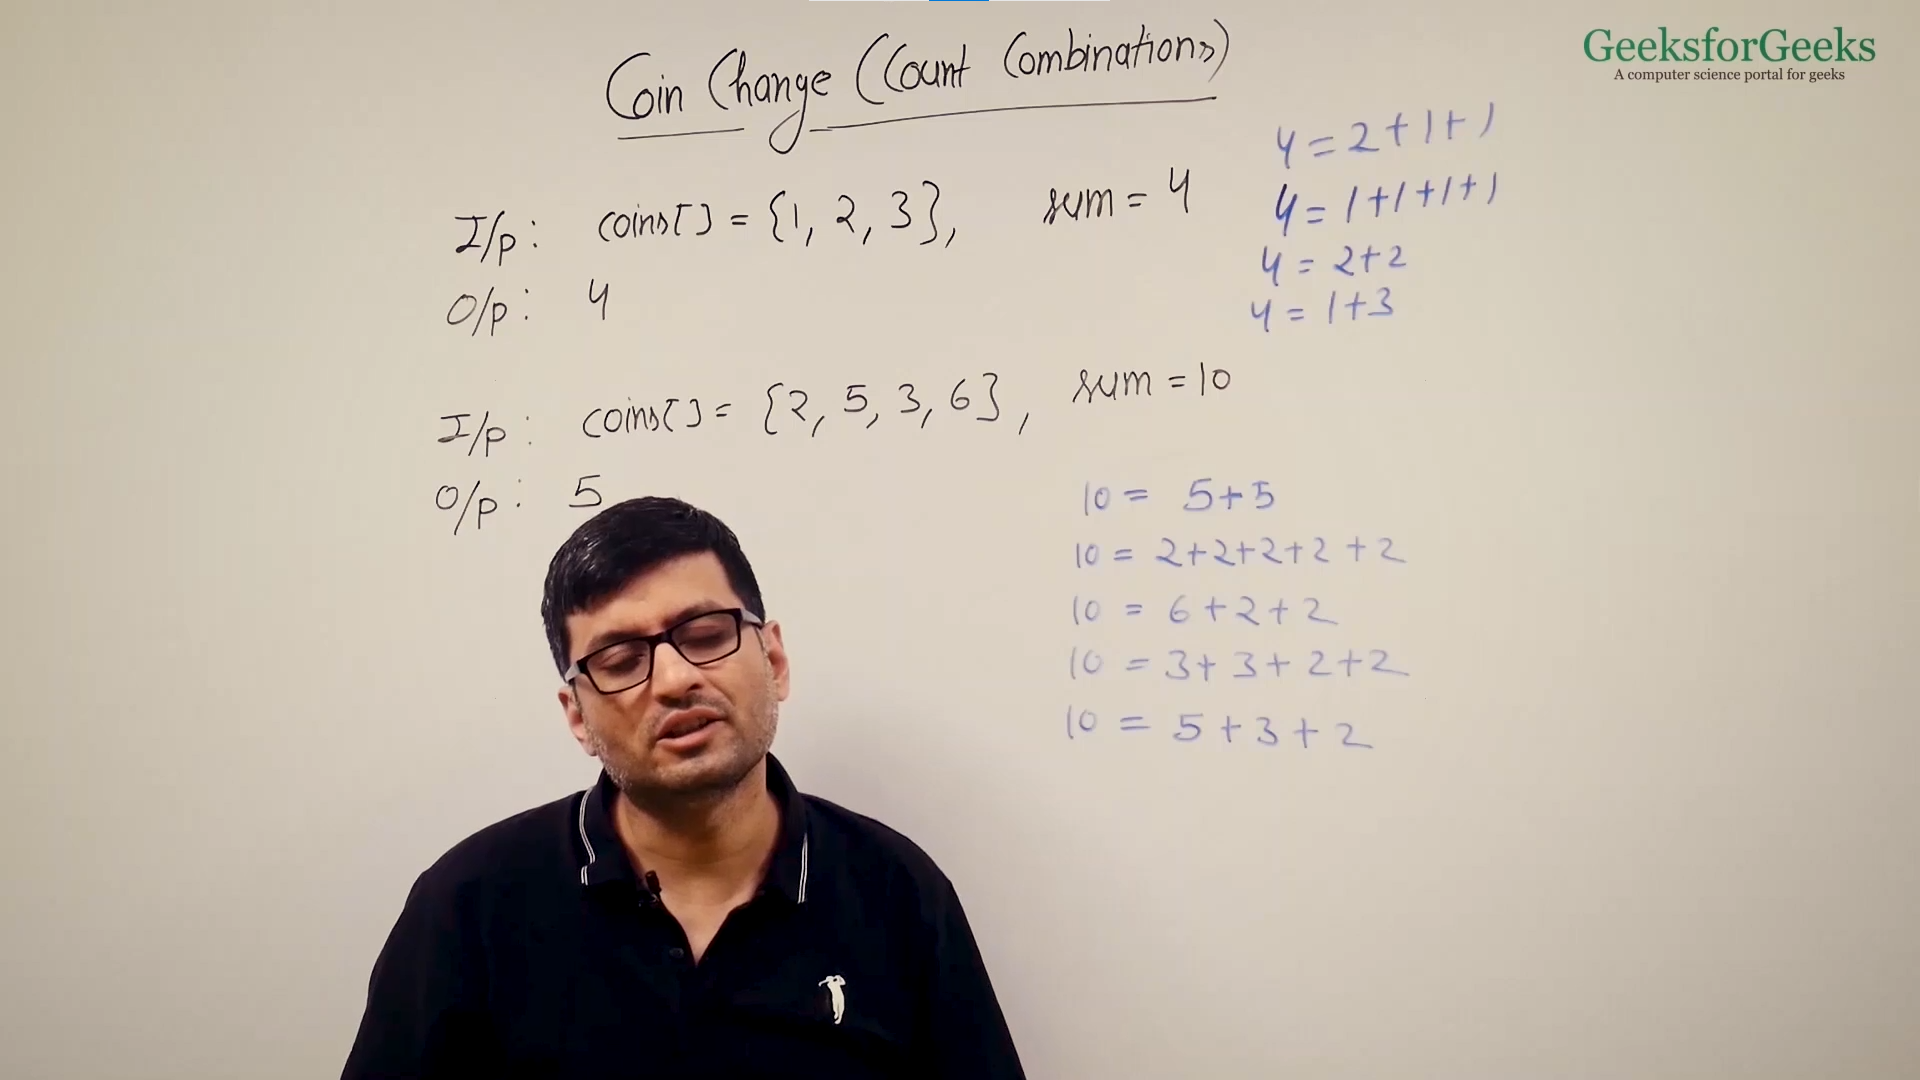 GeeksforGeeks
A computer science portal for geeks
Coin Change (Count Combinations)
I/p: coins[] = {1, 2, 3}, sum = 4
O/p: 4
4 = 2+1+1
4 = 1+1+1+1
4 = 2+2
4 = 1+3
I/p: coins[] = {2, 5, 3, 6}, sum = 10
O/p: 5
10 = 5+5
10 = 2+2+2+2+2
10 = 6+2+2
10 = 3+3+2+2
10 = 5+3+2